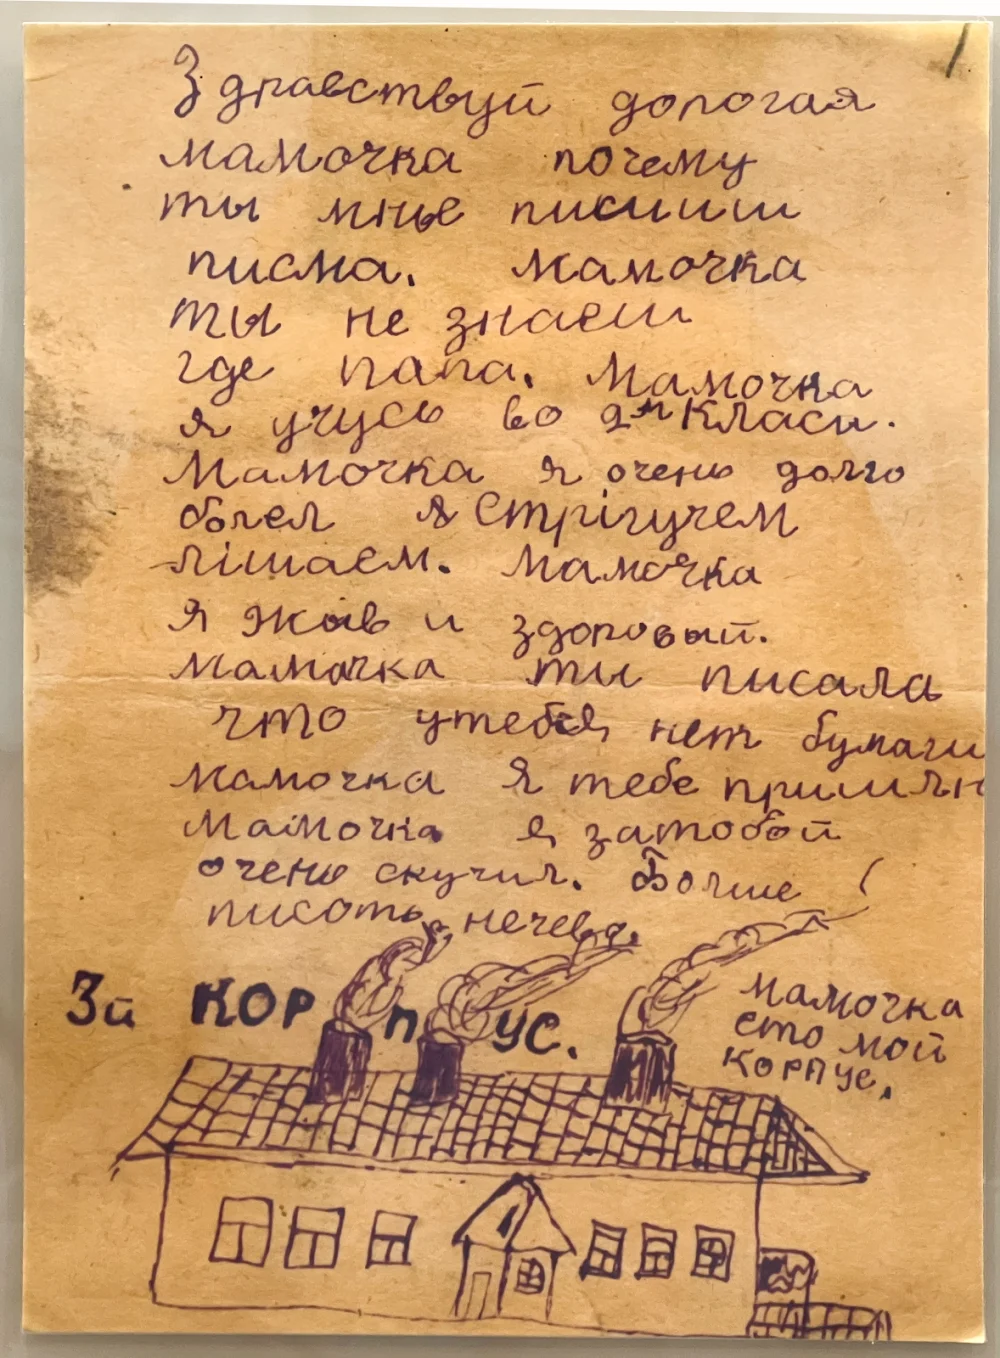 Здравствуй дорогая
мамочка почему
ты мнье писииш
писма. мамочка
ты не знаеш
где папа. Мамочка
я учусь во 2м Класи.
Мамочка я очень долго
болел я Стрігучем
лішаем. Мамочка
я жыв и здоровый.
мамочка ты писала
что утебя нет бумаги
мамочка я тебе пришлю
Мамочка я затобой
очень скучил. Болше
писоть нечево.
3й КОРПУС.
Мамочка
ето мой
КОРПУС.